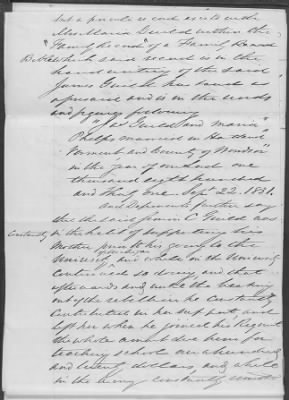 but a private record exists with
Mrs Maria Guild within the
"Family Record" of a Family Board
Bible which said record is in the
hand writing of the said
James Guild has
aforesaid and is in the words
and figures following
"Jas Guild and Maria
Phelps married in Hartland
Vermont and County of Windsor
in the year of our Lord one
thousand eight hundred
and thirty one Sept 22. 1831.
And Deponents further say
the said C Guild was
in the habit of supporting his
Mother his going to the
University, and while in the University
continued so doing, and that
afterwards and until the
out of the rebellion he constantly
contributed in her support and
left her when he joined his Regiment
the whole amount due him for
teaching school one hundred
and twenty dollars, and while
in the Army constantly